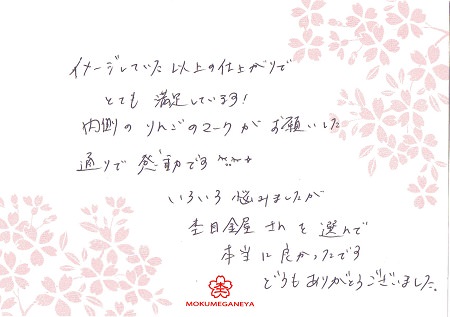 イメージしていた以上の仕上がりで
とても 満足しています!
内側の りんごのマークが お願いした
通りで 感動です^^
いろいろ 悩みましたが
杢目金屋 さんを 選んで
本当に 良かったです
どうもありがとうございました。
杢
MOKUMEGANEYA